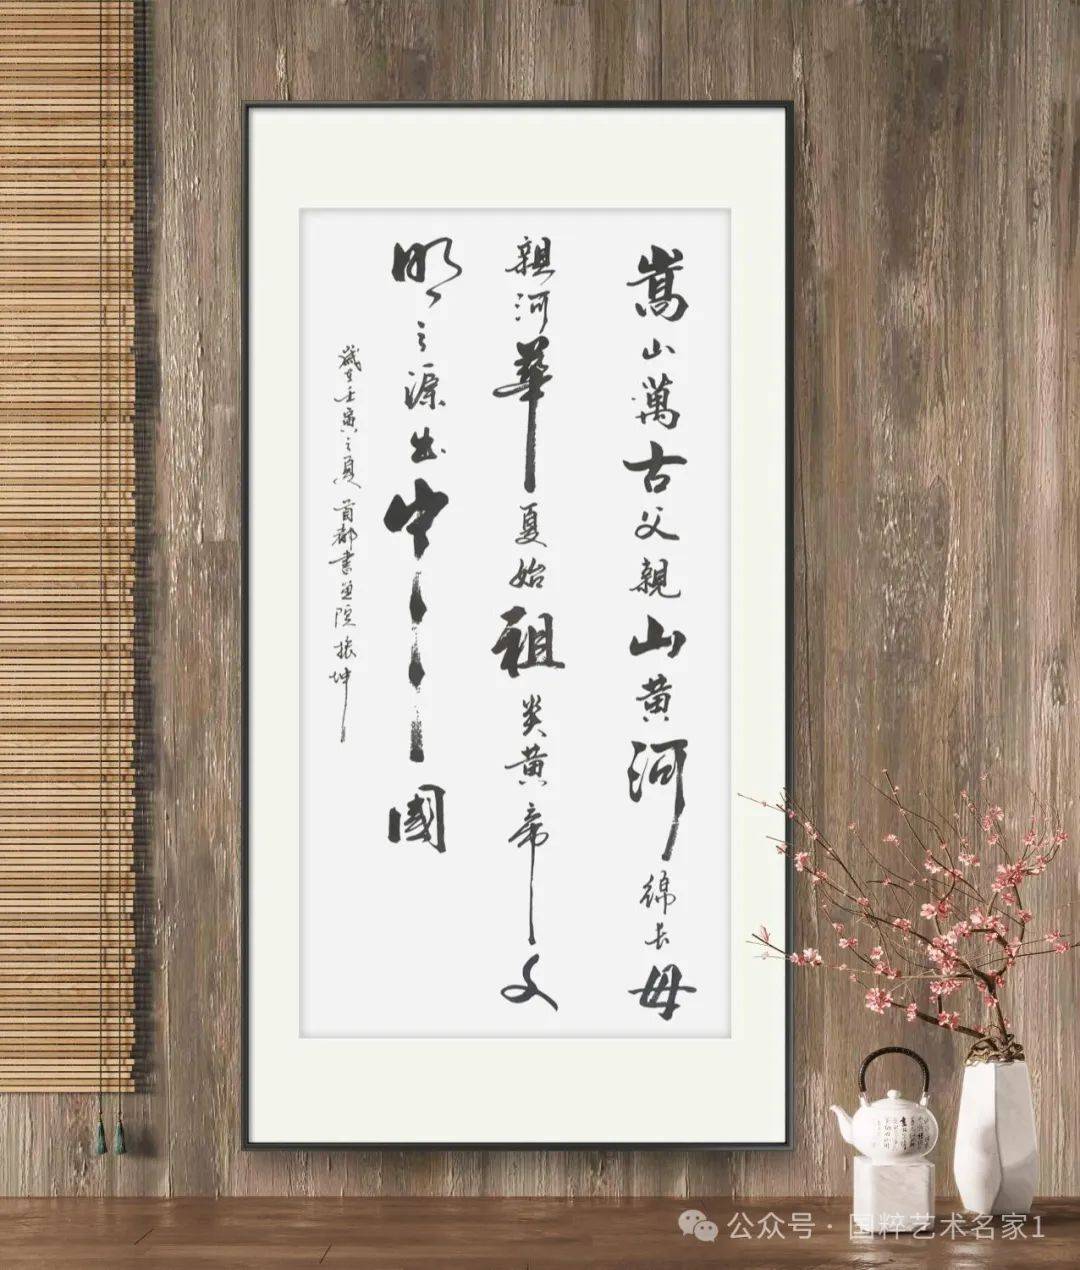 嵩山萬古父親山黄河綿長母
親河華夏始祖炎黄帝文
明之源出中國
歲在壬寅之夏首都書画院振坤
公众号·国粹艺术名家1